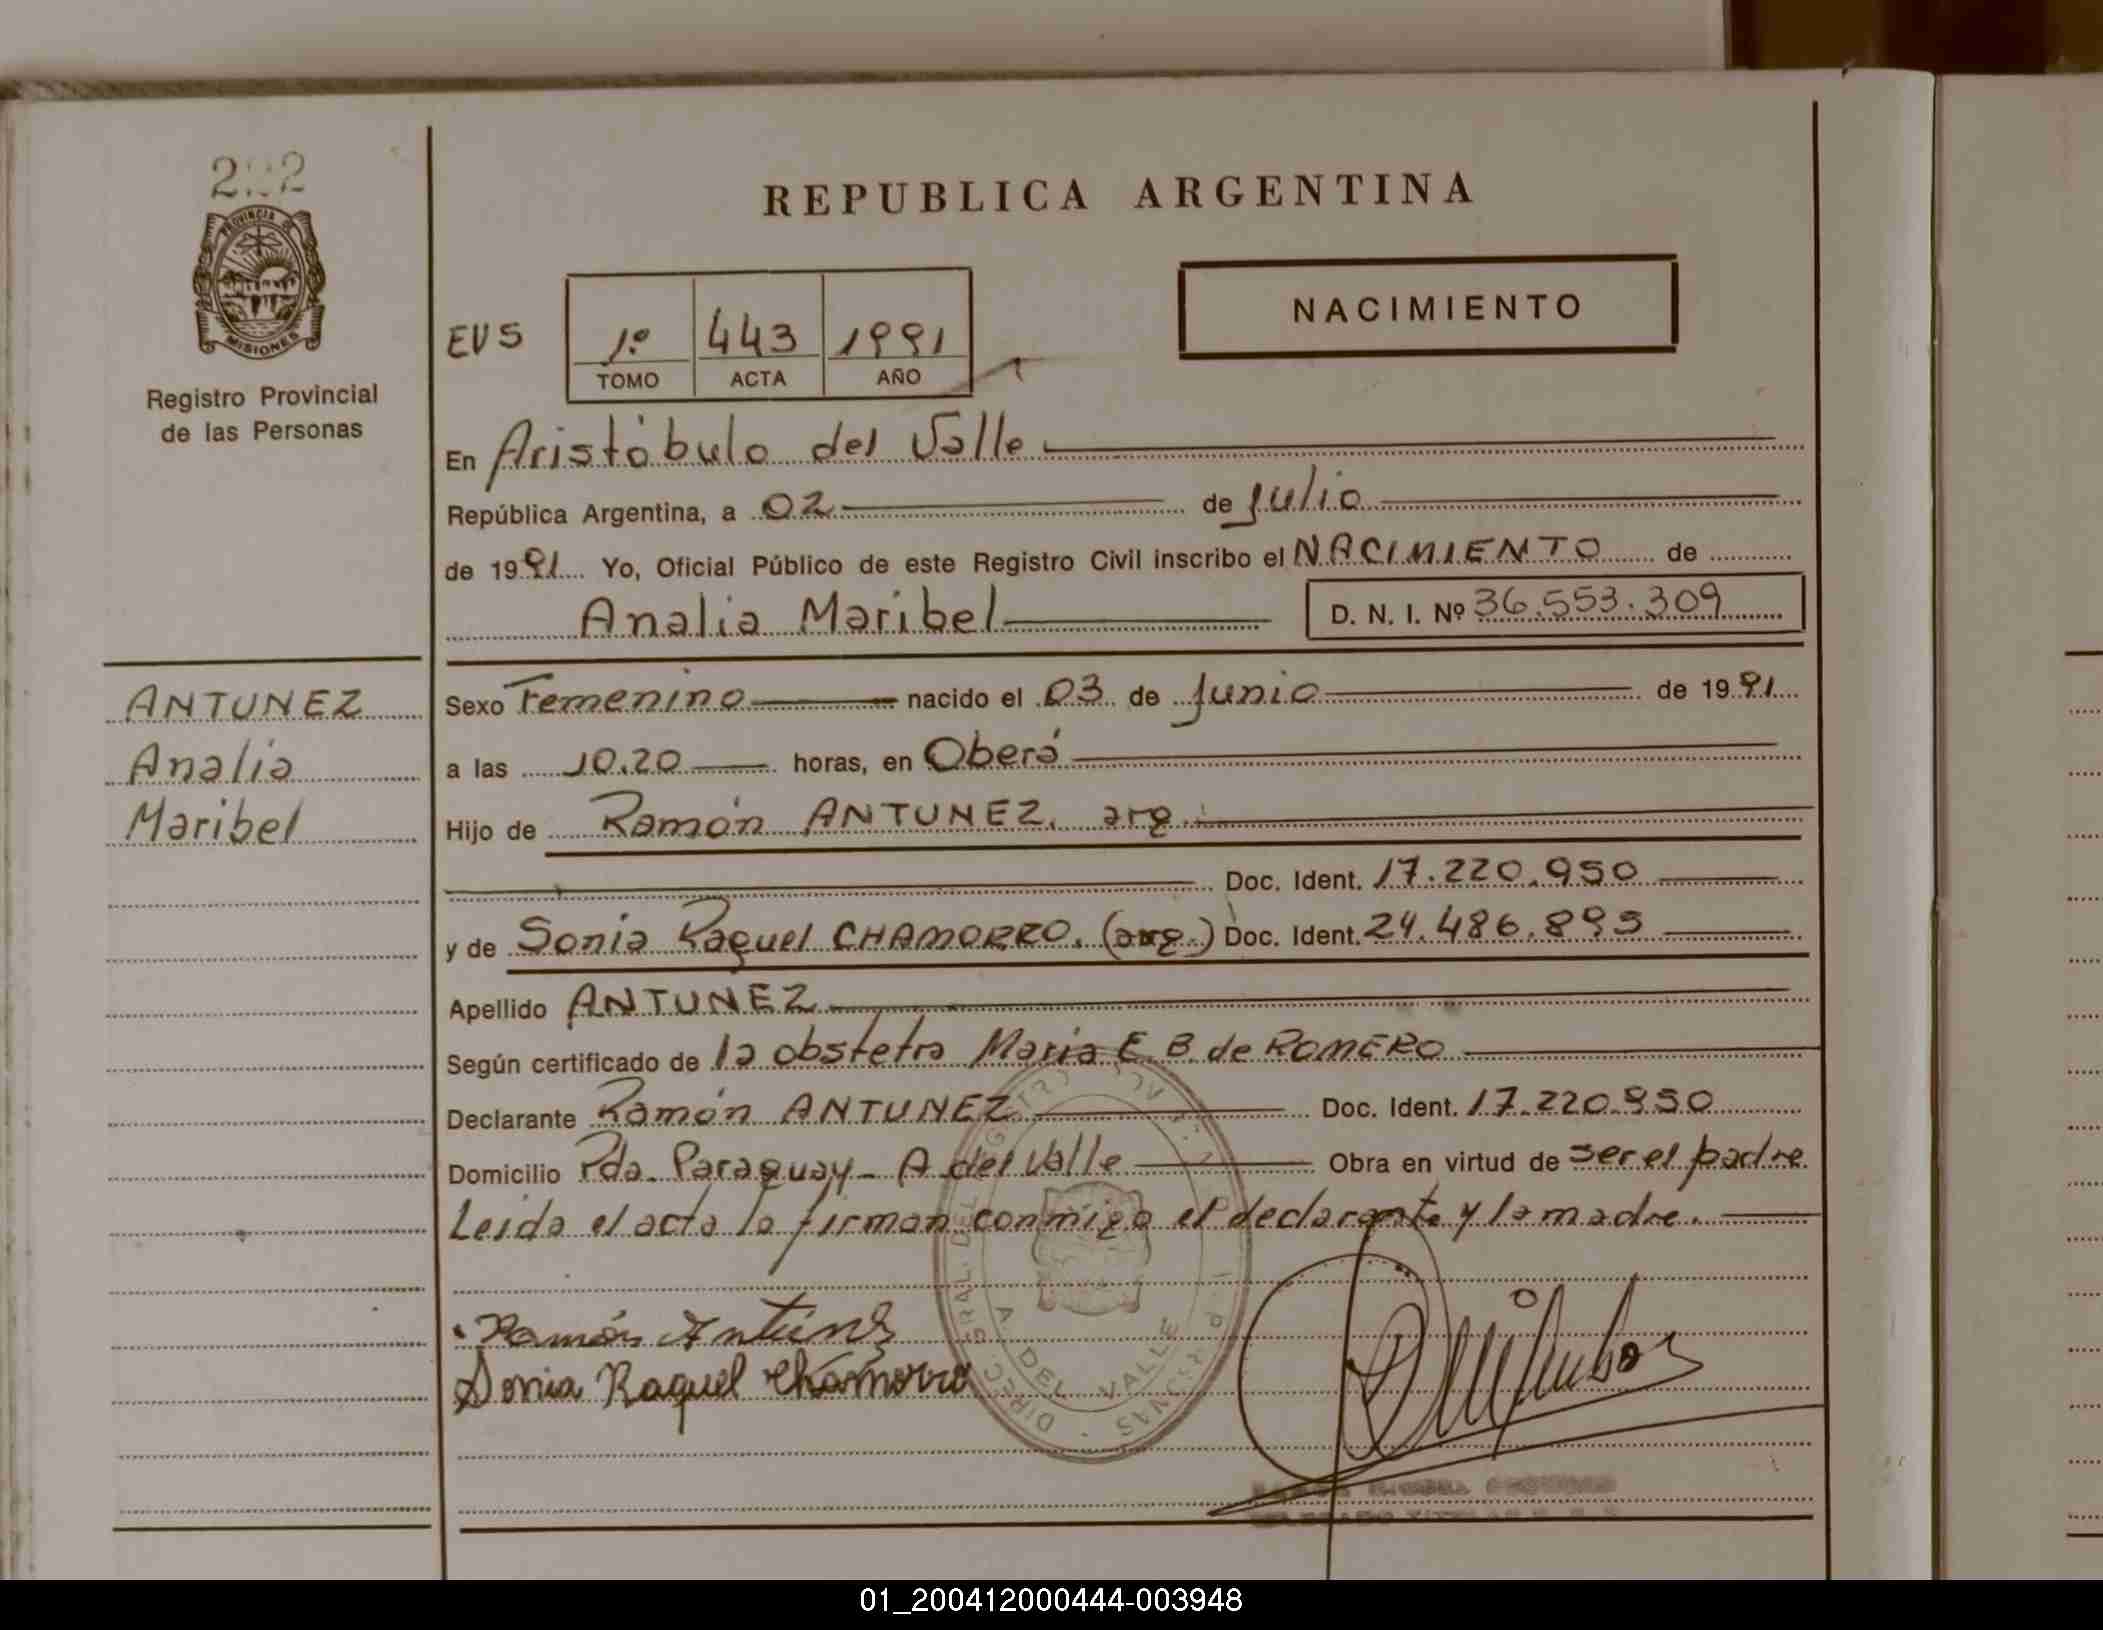 PROVINCIA DE
MISIONES
Registro Provincial
de las Personas
REPUBLICA ARGENTINA
NACIMIENTO
EVS 1º 443 1991
TOMO ACTA AÑO
En Aristóbulo del Valle
República Argentina, a 02 de Julio
de 1991 Yo, Oficial Público de este Registro Civil inscribo el NACIMIENTO de
Analia Maribel D. N. I. Nº 36.553.309
ANTUNEZ
Analia
Maribel
Sexo Femenino nacido el 03 de Junio de 1991
a las 10.20 horas, en Oberá
Hijo de Ramón ANTUNEZ. arg.
Doc. Ident. 17.220.950
y de Sonia Raquel CHAMORRO. (arg.) Doc. Ident. 24.486.895
Apellido ANTUNEZ
Según certificado de la obstetra Maria E. B. de ROMERO
Declarante Ramón ANTUNEZ Doc. Ident. 17.220.950
Domicilio Pda. Paraguay - A del Valle Obra en virtud de ser el padre
Leida el acta la firman conmigo el declarante y la madre.
Ramón Antúnez
Sonia Raquel Chamorro
DEL VALLE
01_200412000444-003948